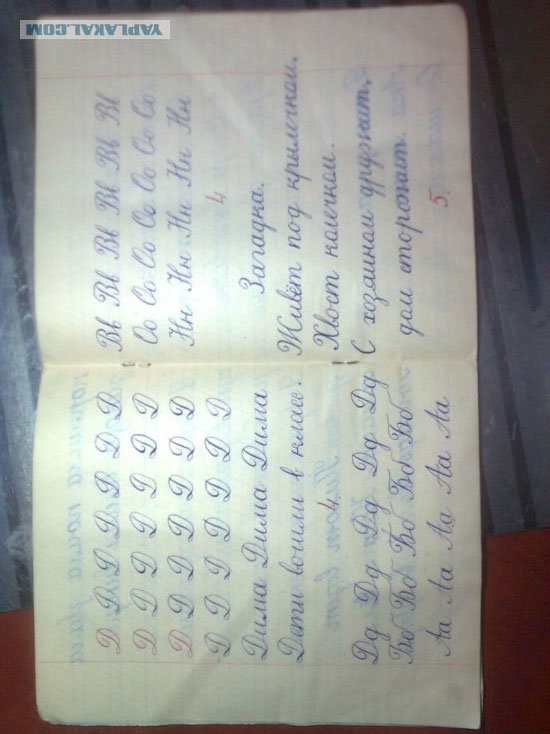 YAPLAKAL.COM
Д Д Д Д Д Д Д
Д Д Д Д Д Д Д
Д Д Д Д Д Д Д
Д Д Д Д Д Д Д
Дима Дима Дима
Дети вошли в класс.
4
Дд Дд Дд Дд Дд
Бб Бб Бб Бб Бб
Аа Аа Аа Аа Аа
Вв Вв Вв Вв Вв
Оо Оо Оо Оо Оо Оо
Нн Нн Нн Нн Нн
4
Загадка.
Живёт под крылечком,
Хвост колечком.
С хозяином дружит,
дом сторожит.
5.